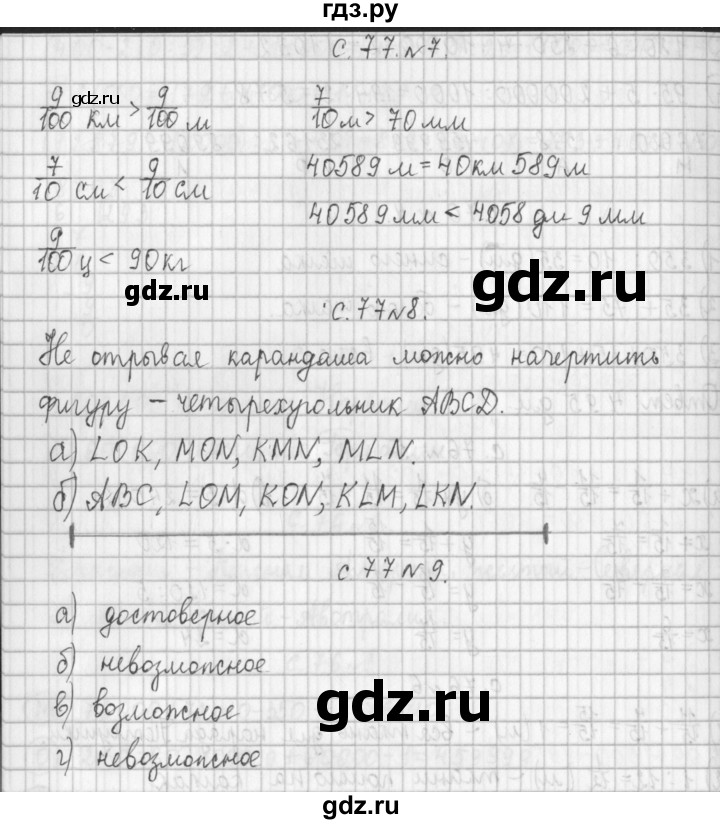 гдз.ру
с. 77. №7.
9/100 км > 9/100 м
gdz.ru
7/10 м > 70 мм
7/10 см < 9/10 см
40589 м = 40км 589 м
40589 мм < 4058 дм 9 мм
9/100 ц < 90 кг
gdz.ru
gdz.ru
с. 77 №8.
Не отрывая карандаша можно начертить
фигуру – четырехугольник ABCD.
а) LOK, MON, KMN, MLN.
б) ABC, LOM, KON, KLM, LKN.
с 77 № 9.
а) достоверное
б) невозможное
в) возможное
г) невозможное
gdz.ru
gdz.ru